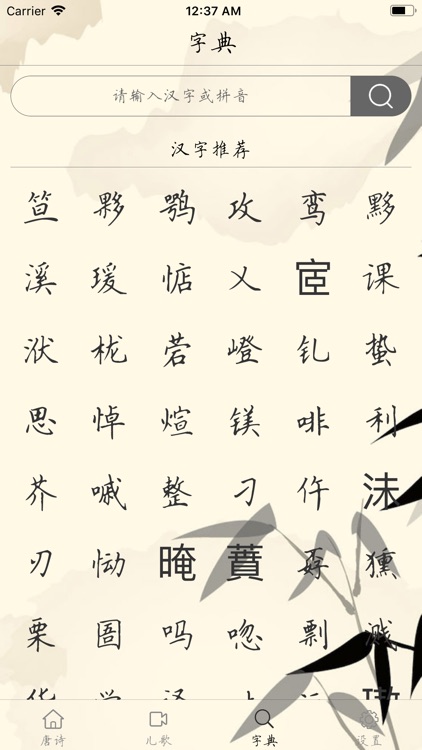 Carrier 12:37 AM
字典
请输入汉字或拼音
汉字推荐
笪 夥 鹗 攻 鸾 黟
溪 瑗 惦 乂 宧 课
洑 栊 菪 嶝 钆 蛰
思 悼 煊 镁 啡 利
芥 嘁 整 刁 仵 沬
刃 恸 晻 蕡 孬 獯
栗 圄 吗 唿 剽 溅
唐诗 儿歌 字典 设置